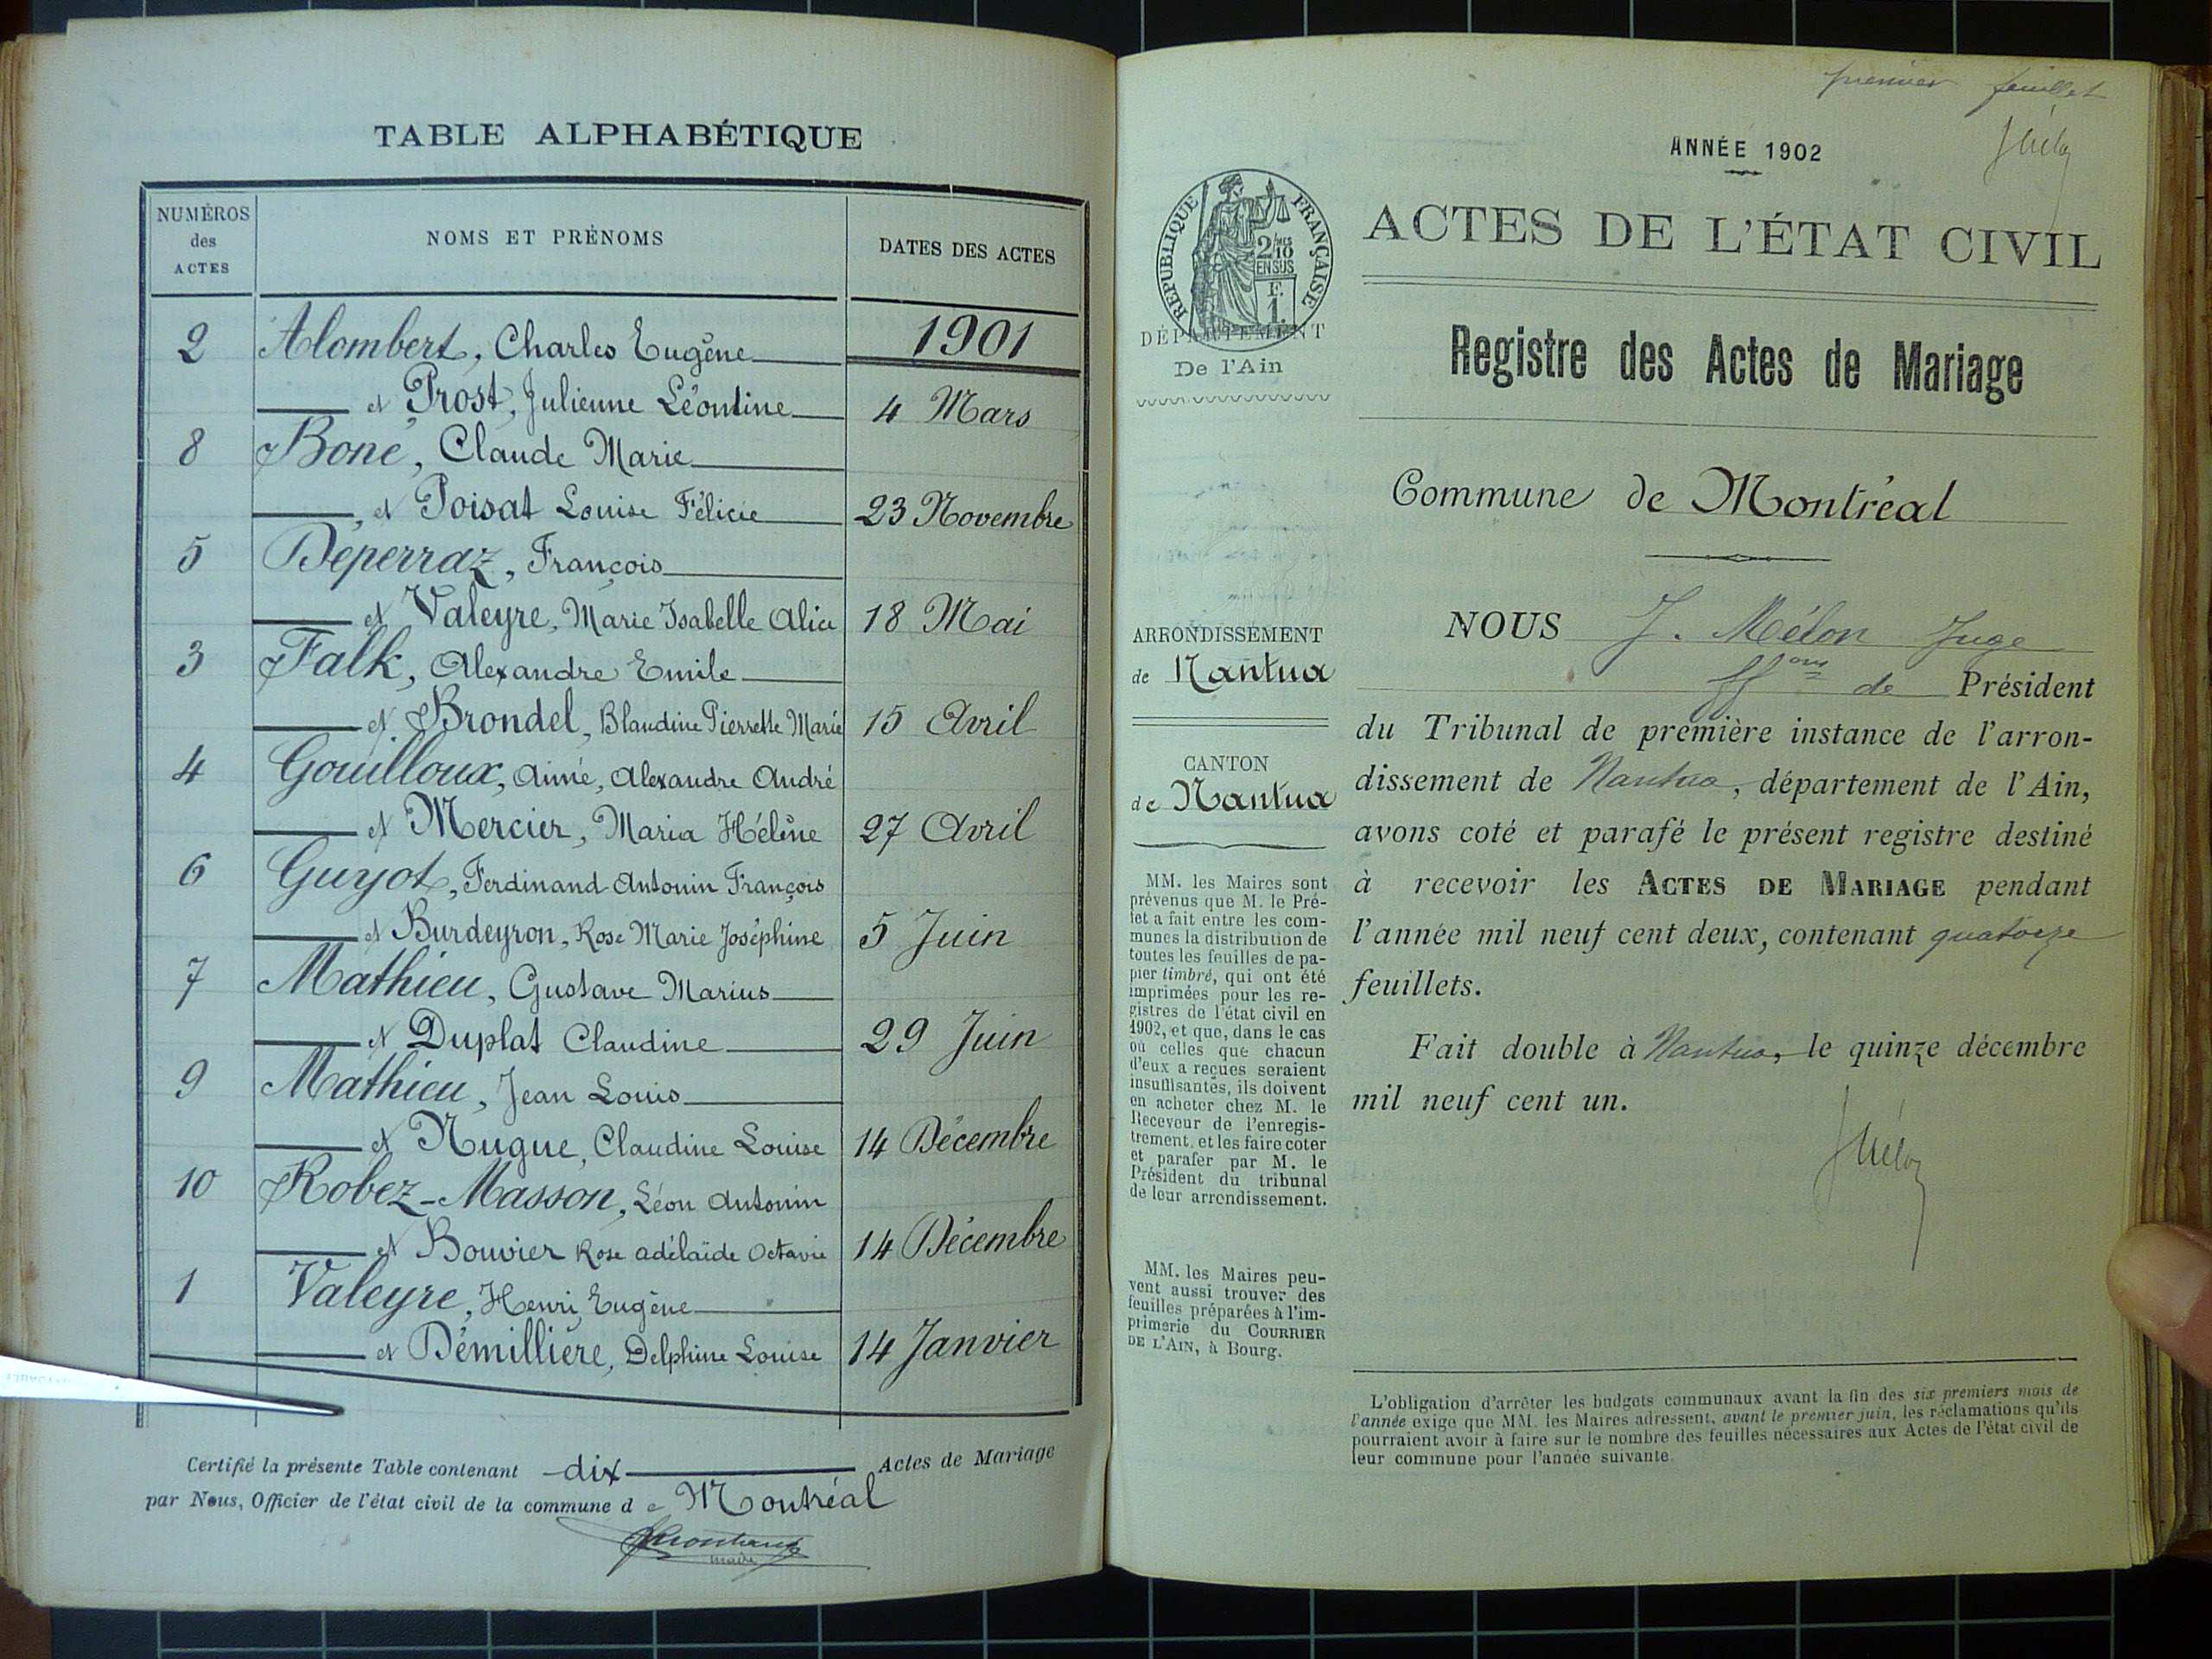 TABLE ALPHABÉTIQUE
NUMÉROS
des
ACTES
NOMS ET PRÉNOMS
DATES DES ACTES
1901
2 Alombert, Charles Eugène
et Prost, Julienne Léontine 4 Mars
8 Boné, Claude Marie
et Poisat Louise Félicie 23 Novembre
5 Déperraz, François
et Valeyre, Marie Isabelle Alice 18 Mai
3 Falk, Alexandre Emile
et Brondel, Blandine Pierrette Marie 15 Avril
4 Gouilloux, Aimé, Alexandre André
et Mercier, Maria Hélène 27 Avril
6 Guyot, Ferdinand Antonin François
et Burdeyron, Rose Marie Joséphine 5 Juin
7 Mathieu, Gustave Marius
et Duplat Claudine 29 Juin
9 Mathieu, Jean Louis
et Nugue, Claudine Louise 14 Décembre
10 Robez-Masson, Léon Antonin
et Bouvier Rose adélaïde Octavie 14 Décembre
1 Valeyre, Henri Eugène
et Démillière, Delphine Louise 14 Janvier
Certifié la présente Table contenant dix Actes de Mariage
par Nous, Officier de l'état civil de la commune de Montréal
maire
premier feuillet
ANNÉE 1902
RÉPUBLIQUE FRANÇAISE
2/10
EN SUS
F.
1.
ACTES DE L'ÉTAT CIVIL
DÉPARTEMENT
De l'Ain
Registre des Actes de Mariage
Commune de Montréal
ARRONDISSEMENT
de Nantua
CANTON
de Nantua
MM. les Maires sont
prévenus que M. le Pré-
fet a fait entre les com-
munes la distribution de
toutes les feuilles de pa-
pier timbré, qui ont été
imprimées pour les re-
gistres de l'état civil en
1902, et que, dans le cas
où celles que chacun
d'eux a reçues seraient
insuffisantes, ils doivent
en acheter chez M. le
Receveur de l'enregis-
trement, et les faire coter
et parafer par M. le
Président du tribunal
de leur arrondissement.
MM. les Maires peu-
vent aussi trouver des
feuilles préparées à l'im-
primerie du COURRIER
DE L'AIN, à Bourg.
NOUS J. Mélon Juge
ffons de Président
du Tribunal de première instance de l'arron-
dissement de Nantua, département de l'Ain,
avons coté et parafé le présent registre destiné
à recevoir les ACTES DE MARIAGE pendant
l'année mil neuf cent deux, contenant quatorze
feuillets.
Fait double à Nantua, le quinze décembre
mil neuf cent un.
L'obligation d'arrêter les budgets communaux avant la fin des six premiers mois de
l'année exige que MM. les Maires adressent, avant le premier juin, les réclamations qu'ils
pourraient avoir à faire sur le nombre des feuilles nécessaires aux Actes de l'état civil de
leur commune pour l'année suivante.